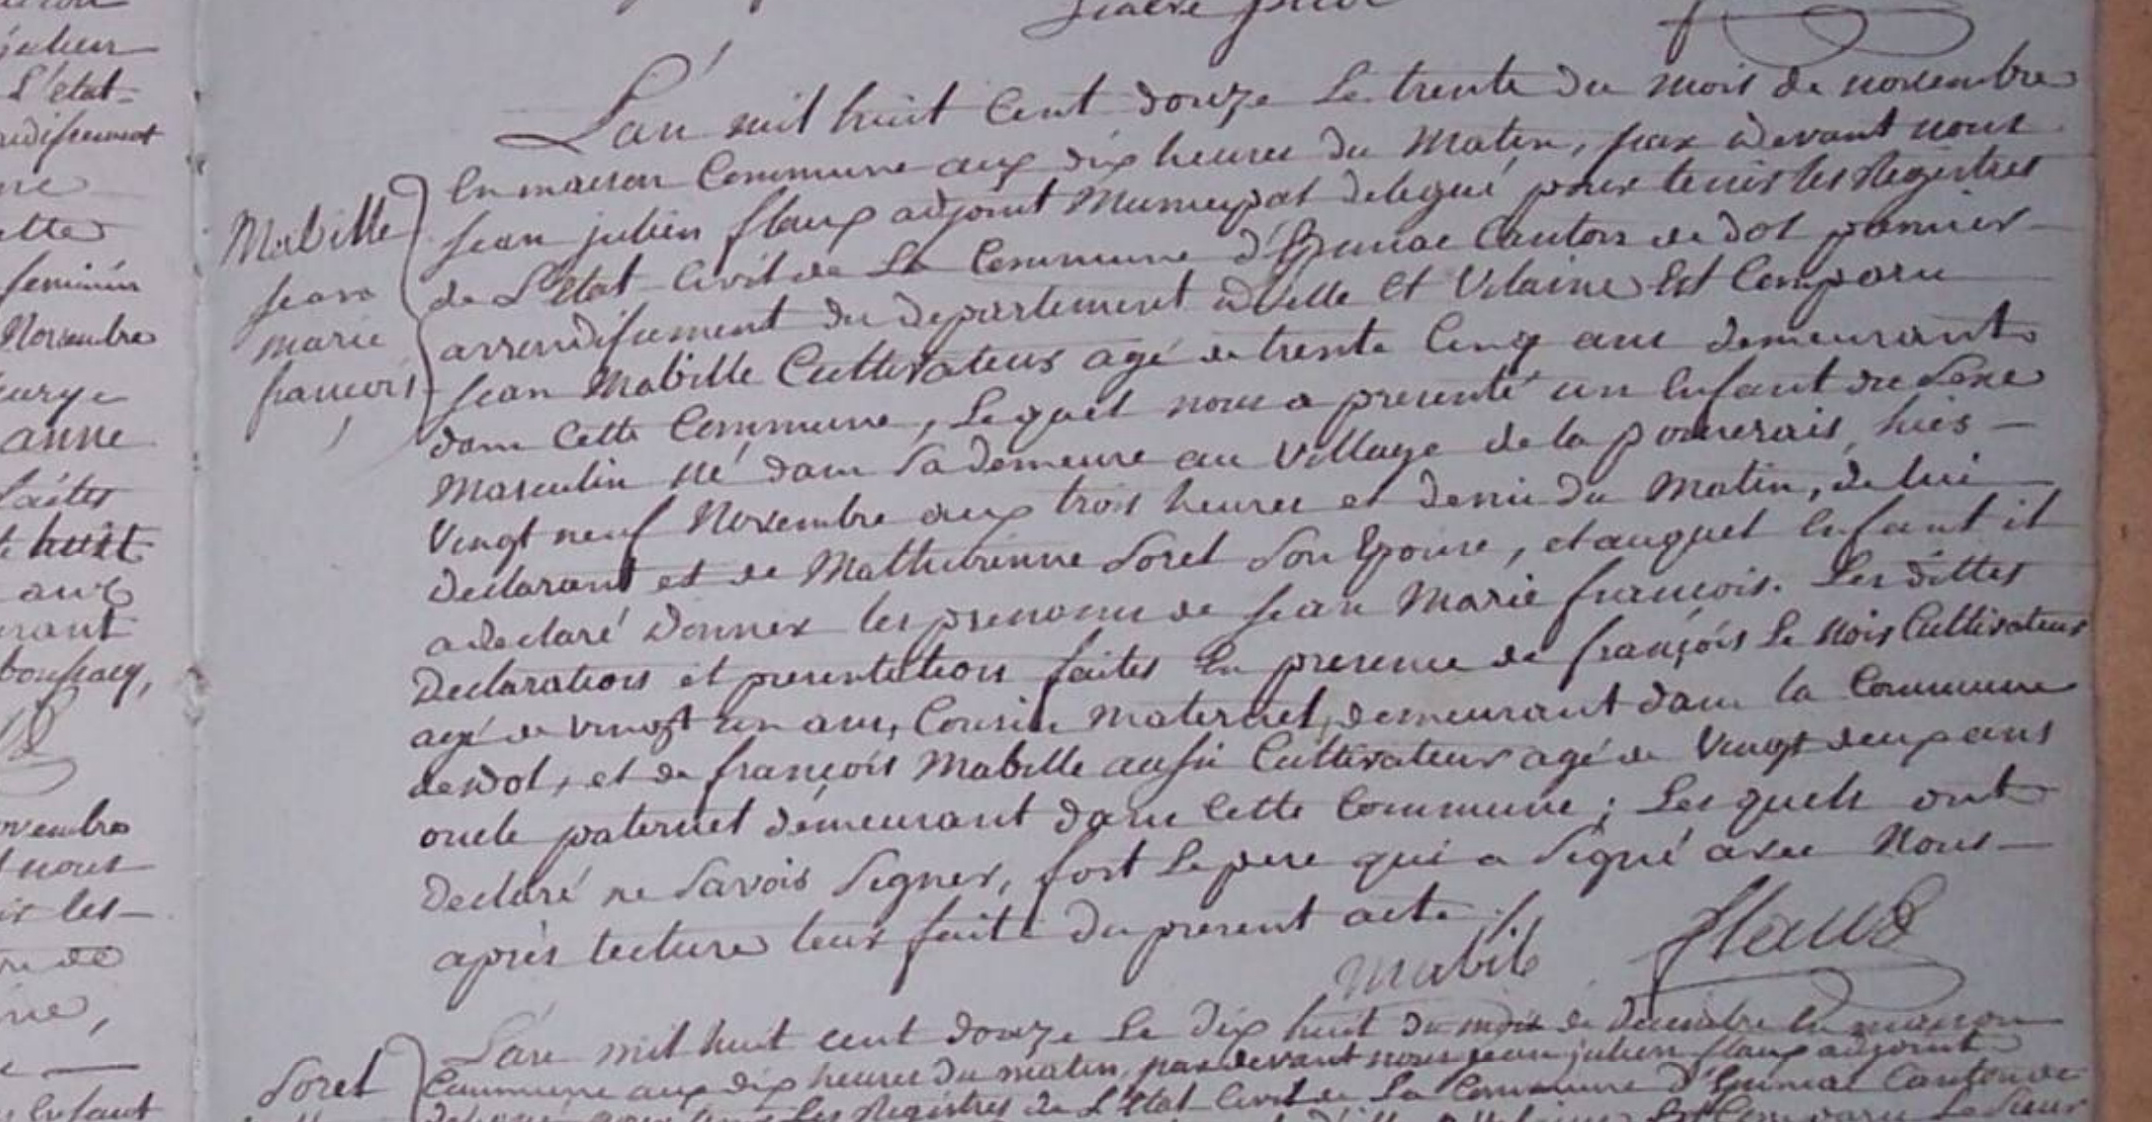 L'an mil huit Cent douze Le trente du mois de novembre
En maison Commune aux dix heures du Matin, par devant nous
Jean julien flaux adjoint Municipal delegué pour tenir les Registres
de L'Etat Civil de La Commune d'Epiniac Canton de dol premier
arrondissement du departement d'ille Et Vilaine Est Comparu
Jean Mabille Cultivateur agé de trente Cinq ans demeurant
dans Cette Commune, Lequel nous a presenté un Enfant du Sexe
Masculin né dans Sa demeure au Village de la pommerais, hier
Vingt neuf Novembre aux trois heures et demie du Matin, de lui
declarant et de Mathurinne Sorel Son Epouse, et auquel Enfant il
a declaré donner les prenoms de Jean Marie francois. Les dittes
Declaration et presentation faites En presence de françois Le Nois Cultivateur
agé de vingt un ans, Cousin maternel, demeurant dans la Commune
de dol, et de françois Mabille aussi Cultivateur agé de Vingt deux ans
oncle paternel demeurant dans Cette Commune; Lesquels ont
Declaré ne Savoir Signer, fort Le pere qui a Signé avec Nous
après lecture leur faite du present acte.
Mabile flaux
Mabille
Jean
marie
francois
L'an mil huit cent douze Le dix huit du mois de decembre En maison
Commune aux dix heures du matin, par devant nous jean julien flaux adjoint
Les Registres de L'Etat Civil de La Commune d'Epiniac Canton de
Est Comparu Le Sieur
Sorel
julien
L'etat
feminin
Novembre
anne
faites
huit
rant
nous
les
Enfant